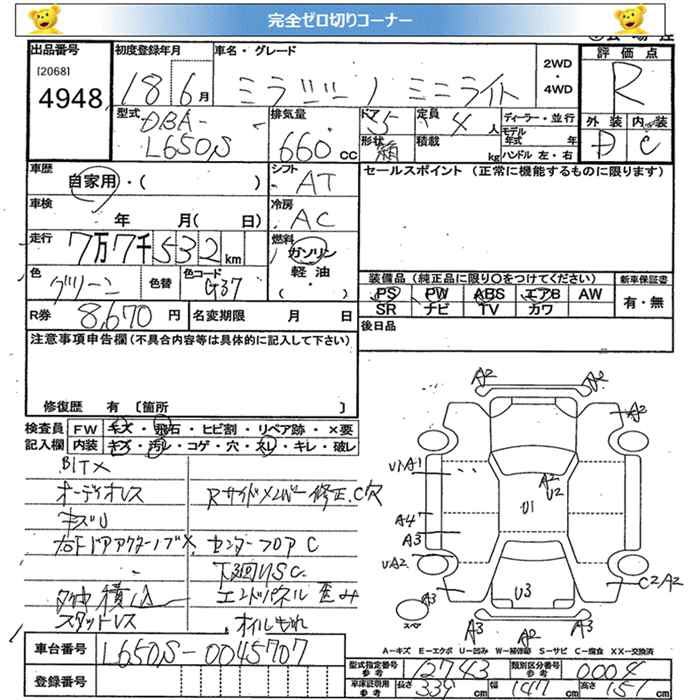 完全ゼロ切りコーナー
出品番号 初度登録年月 車名・グレード 2WD・4WD 評価点
[2068]
4948 18 6月 ミラジーノ ミニライト R
型式 排気量 ドア 定員 ディーラー・並行 外装 内装
DBA-L650S 660cc 5 4人 モデル年式 年 D C
形状 積載 kg ハンドル 左・右
車歴 シフト セールスポイント (正常に機能するものに限ります)
自家用・( ) AT
車検 年 月( 日) 冷房 AC
走行 7万7千532km 燃料 ガソリン 軽油 ( ・ )
色 グリーン 色替 色コード G37
装備品 (純正品に限り○をつけてください) 新車保証書
PS PW ABS エアB AW 有・無
SR ナビ TV カワ
R券 8,670円 名変期限 月 日
後日品
注意事項申告欄 (不具合内容等は具体的に記入して下さい)
修復歴 有 〔箇所 〕
検査員記入欄 FW キズ・飛石・ヒビ割・リペア跡・×要
内装 キズ・汚レ・コゲ・穴・スレ・キレ・破レ
オーディオレス Rサイドメンバー修正、C穴
キズU
センターフロアC
下廻りSC
積込 エンドパネル歪み
スタッドレス オイルもれ
A2 A2
A2
UA1 A2 U2
U1
A4
A3
UA2
U3 C2A2
A3
スペア
A3 A2 A3
A-キズ E-エクボ U-凹み W-補修跡 S-サビ C-腐食 XX-交換済
車台番号 L650S-0045707
型式指定番号 参考 12743 類別区分番号 参考 0004
登録番号
長さ 339cm 幅 147cm 高さ 151cm